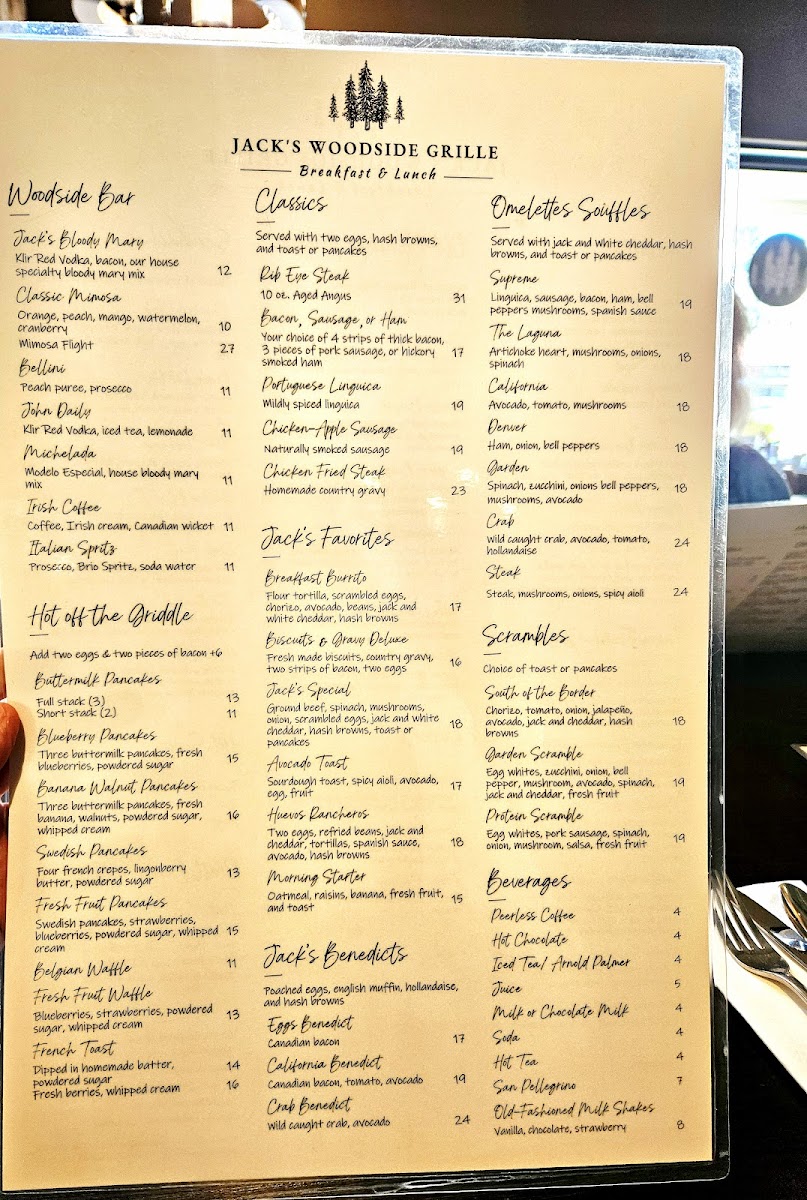 JACK'S WOODSIDE GRILLE
Breakfast & Lunch
Woodside Bar
Jack's Bloody Mary
Klir Red Vodka, bacon, our house
specialty bloody mary mix 12
Classic Mimosa
Orange, peach, mango, watermelon,
cranberry 10
Mimosa Flight 27
Bellini
Peach puree, prosecco 11
John Daily
Klir Red Vodka, iced tea, lemonade 11
Michelada
Modelo Especial, house bloody mary
mix 11
Irish Coffee
Coffee, Irish cream, Canadian wicket 11
Italian Spritz
Prosecco, Brio Spritz, soda water 11
Hot off the Griddle
Add two eggs & two pieces of bacon +6
Buttermilk Pancakes
Full stack (3) 13
Short stack (2) 11
Blueberry Pancakes
Three buttermilk pancakes, fresh
blueberries, powdered sugar 15
Banana Walnut Pancakes
Three buttermilk pancakes, fresh
banana, walnuts, powdered sugar,
whipped cream 16
Swedish Pancakes
Four french crepes, lingonberry
butter, powdered sugar 13
Fresh Fruit Pancakes
Swedish pancakes, strawberries,
blueberries, powdered sugar, whipped
cream 15
Belgian Waffle 11
Fresh Fruit Waffle
Blueberries, strawberries, powdered
sugar, whipped cream 13
French Toast
Dipped in homemade batter,
powdered sugar 14
Fresh berries, whipped cream 16
Classics
Served with two eggs, hash browns,
and toast or pancakes
Rib Eye Steak
10 oz. Aged Angus 31
Bacon, Sausage, or Ham
Your choice of 4 strips of thick bacon,
3 pieces of pork sausage, or hickory
smoked ham 17
Portuguese Linguica
Mildly spiced linguica 19
Chicken-Apple Sausage
Naturally smoked sausage 19
Chicken Fried Steak
Homemade country gravy 23
Jack's Favorites
Breakfast Burrito
Flour tortilla, scrambled eggs,
chorizo, avocado, beans, jack and
white cheddar, hash browns 17
Biscuits & Gravy Deluxe
Fresh made biscuits, country gravy,
two strips of bacon, two eggs 16
Jack's Special
Ground beef, spinach, mushrooms,
onion, scrambled eggs, jack and white
cheddar, hash browns, toast or
pancakes 18
Avocado Toast
Sourdough toast, spicy aioli, avocado,
egg, fruit 17
Huevos Rancheros
Two eggs, refried beans, jack and
cheddar, tortillas, spanish sauce,
avocado, hash browns 18
Morning Starter
Oatmeal, raisins, banana, fresh fruit,
and toast 15
Jack's Benedicts
Poached eggs, english muffin, hollandaise,
and hash browns
Eggs Benedict
Canadian bacon 17
California Benedict
Canadian bacon, tomato, avocado 19
Crab Benedict
Wild caught crab, avocado 24
Omelettes Souffles
Served with jack and white cheddar, hash
browns, and toast or pancakes
Supreme
Linguica, sausage, bacon, ham, bell
peppers mushrooms, spanish sauce 19
The Laguna
Artichoke heart, mushrooms, onions,
spinach 18
California
Avocado, tomato, mushrooms 18
Denver
Ham, onion, bell peppers 18
Garden
Spinach, zucchini, onions bell peppers,
mushrooms, avocado 18
Crab
Wild caught crab, avocado, tomato,
hollandaise 24
Steak
Steak, mushrooms, onions, spicy aioli 24
Scrambles
Choice of toast or pancakes
South of the Border
Chorizo, tomato, onion, jalapeño,
avocado, jack and cheddar, hash
browns 18
Garden Scramble
Egg whites, zucchini, onion, bell
pepper, mushroom, avocado, spinach,
jack and cheddar, fresh fruit 19
Protein Scramble
Egg whites, pork sausage, spinach,
onion, mushroom, salsa, fresh fruit 19
Beverages
Peerless Coffee 4
Hot Chocolate 4
Iced Tea/ Arnold Palmer 4
Juice 5
Milk or Chocolate Milk 4
Soda 4
Hot Tea 4
San Pellegrino 7
Old-Fashioned Milk Shakes
Vanilla, chocolate, strawberry 8